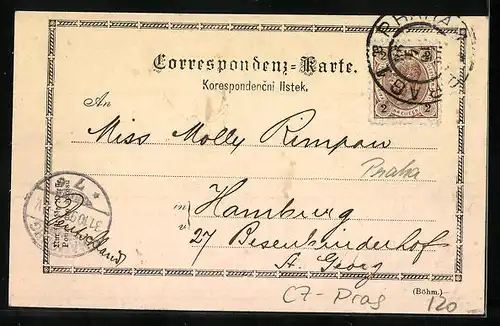 Correspondenz-Karte.
Korespondenční lístek.
An
Miss Molly Rimpau
Praha
in
v
Hamburg
27 Besenbinderhof
St. Georg
Deutschland
(Böhm.)
CZ-Prag
120
PRAHA
PRAG
2 2
31.10.98